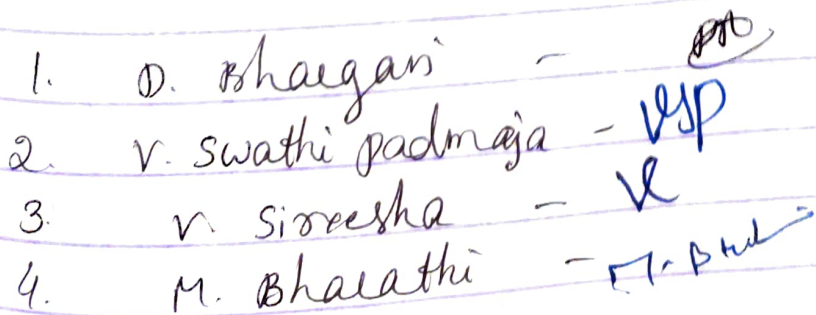 1. D. Bhargavi -
2. V. Swathi padmaja - VSP
3. V. Sireesha -
4. M. Bharathi -